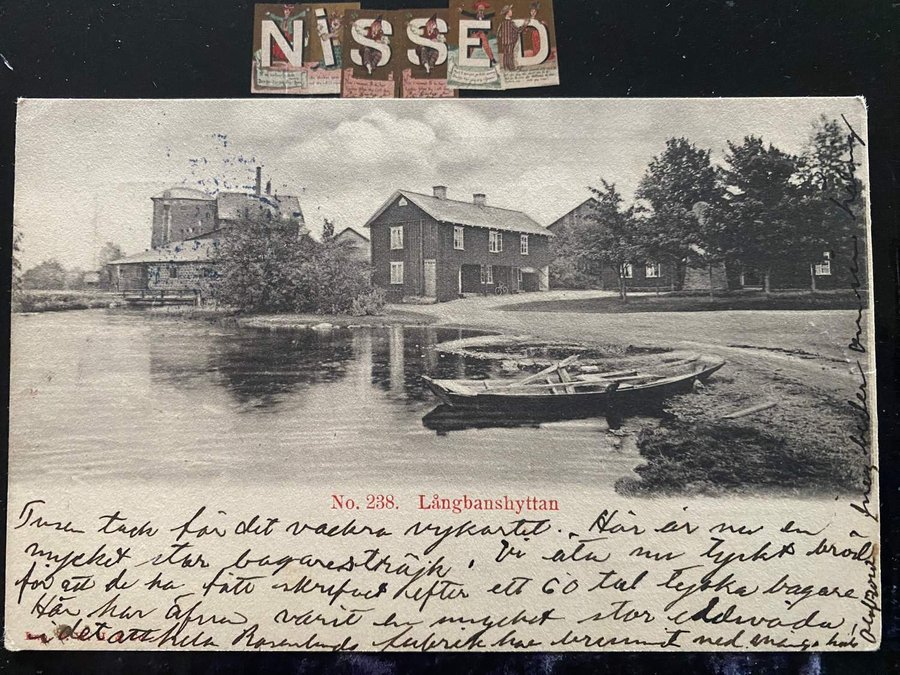 NISSED
No. 238. Långbanshyttan
Tusen tack för det vackra vykortet. Här är nu en
mycket stor bagarestrájk. Vi äta nu tyskt bröd
för att de ha fått skrifvet efter ett 60 tal tyska bagare
Här har äfven varit en mycket stor eldsvåda,
i det att hela Rosenlunds fabrik har brunnit ned många